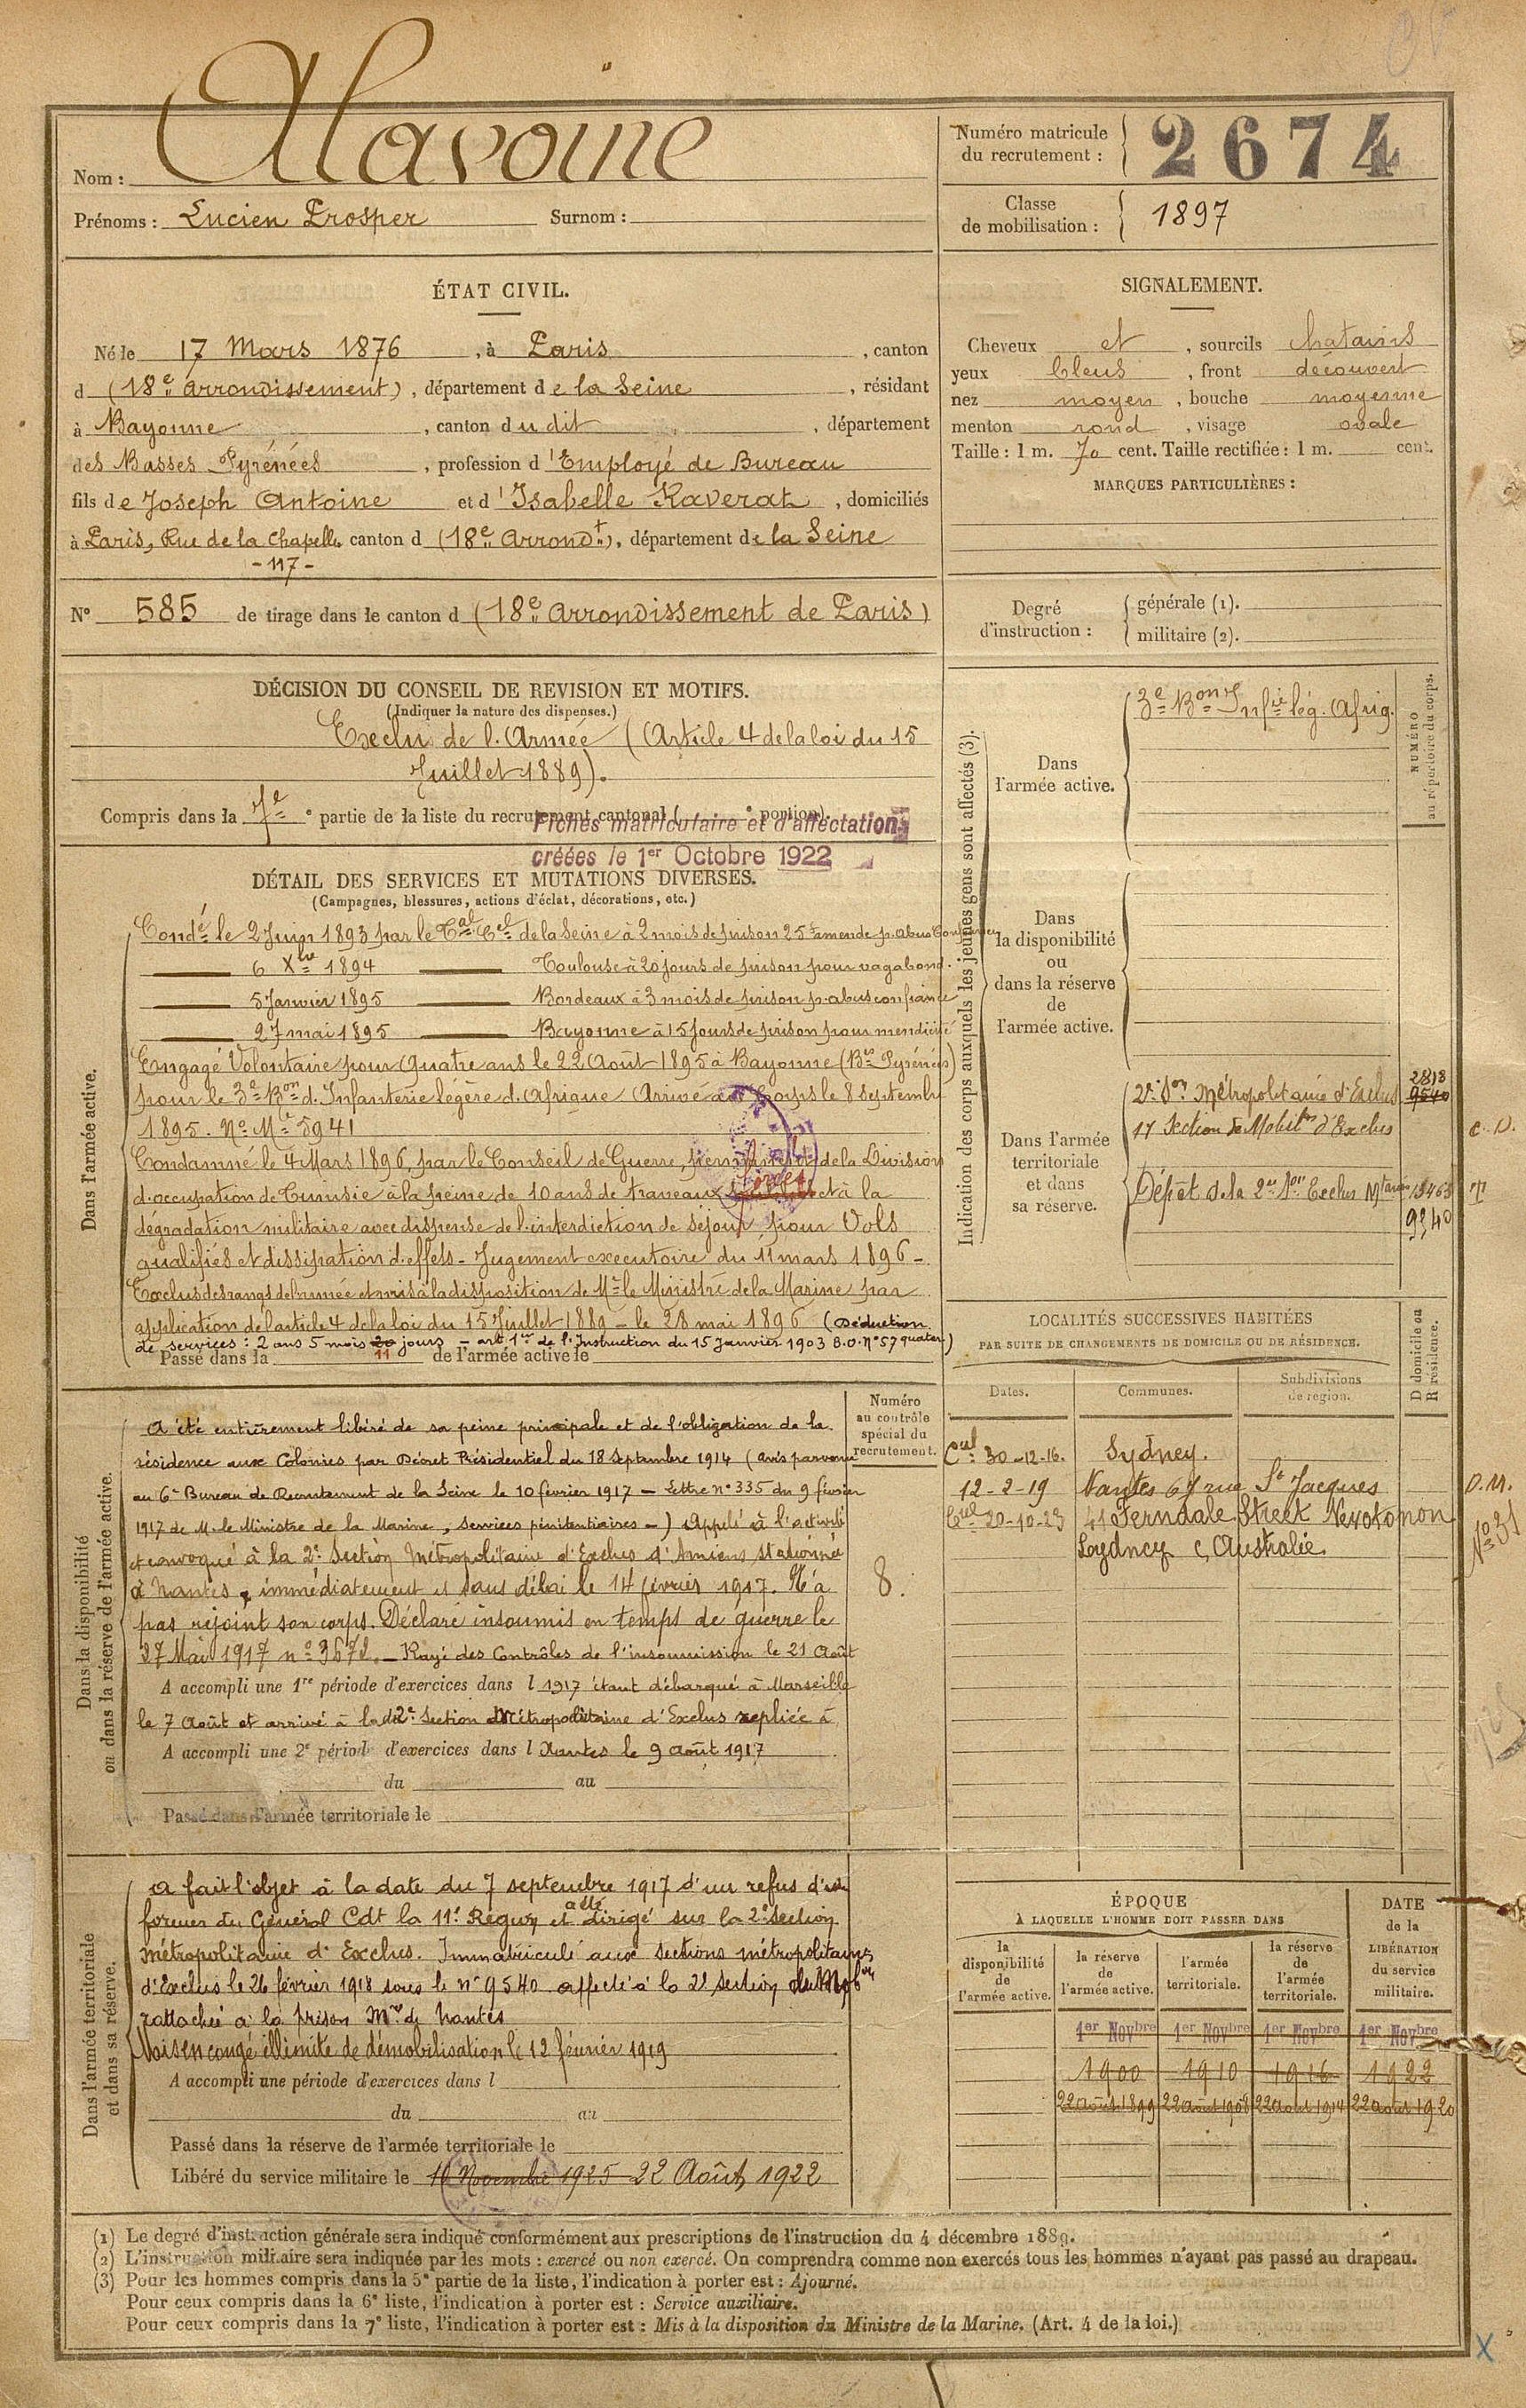 Nom : Alavoine
Prénoms : Lucien Prosper Surnom :
Numéro matricule du recrutement : 2674
Classe de mobilisation : 1897
ÉTAT CIVIL.
Né le 17 Mars 1876, à Paris, canton
d (18e arrondissement), département de la Seine, résidant
à Bayonne, canton dudit, département
des Basses Pyrénées, profession d'Employé de Bureau
fils de Joseph Antoine et d'Isabelle Raverat, domiciliés
à Paris, Rue de la Chapelle canton d (18e arrondt), département de la Seine
- 117 -
N° 585 de tirage dans le canton d (18e arrondissement de Paris)
SIGNALEMENT.
Cheveux et, sourcils chatains
yeux bleus, front découvert
nez moyen, bouche moyenne
menton rond, visage ovale
Taille : 1 m. 70 cent. Taille rectifiée : 1 m. cent.
MARQUES PARTICULIÈRES :
Degré d'instruction : générale (1).
militaire (2).
DÉCISION DU CONSEIL DE REVISION ET MOTIFS.
(Indiquer la nature des dispenses.)
Exclu de l'Armée (Article 4 de la loi du 15
Juillet 1889).
Compris dans la 7e partie de la liste du recrutement cantonal ( e portion).
Fiches matriculaire et d'affectation
créées le 1er Octobre 1922
DÉTAIL DES SERVICES ET MUTATIONS DIVERSES.
(Campagnes, blessures, actions d'éclat, décorations, etc.)
Dans l'armée active.
Condé le 2 Juin 1893 par le Tal Cel de la Seine à 2 mois de prison 25 f amende p. abus confiance
6 Xbre 1894 Toulouse à 20 jours de prison pour vagabond.
5 Janvier 1895 Bordeaux à 3 mois de prison p. abus confiance
27 mai 1895 Bayonne à 15 jours de prison pour mendicité
Engagé Volontaire pour quatre ans le 22 Août 1895 à Bayonne (Bses Pyrénées)
pour le 3e Bon d'Infanterie légère d'Afrique Arrivé au Corps le 8 septembre
1895. No Mle 5941
Condamné le 4 Mars 1896, par le Conseil de Guerre, permanent de la Division
d'occupation de Tunisie à la peine de 10 ans de travaux forcés et à la
dégradation militaire avec dispense de l'interdiction de séjour pour Vols
qualifiés et dissipation d'effets - Jugement executoire du 11 mars 1896 -
Exclus des rangs de l'armée et mis à la disposition de Mr le Ministre de la Marine par
application de l'article 4 de la loi du 15 Juillet 1889 - le 28 mai 1896 (Déduction
de services : 2 ans 5 mois 20 11 jours - art 1er de l'Instruction du 15 Janvier 1903 B.O. N° 57 quater)
Passé dans la de l'armée active le
Indication des corps auxquels les jeunes gens sont affectés (3).
NUMÉRO au répertoire du corps.
Dans l'armée active.
3e Bon Infie lég. Afriq.
Dans la disponibilité ou dans la réserve de l'armée active.
Dans l'armée territoriale et dans sa réserve.
2e Son Métropolitaine d'Exclus 2818 9540
17 Section de Mobilés d'Exclus C. D.
Dépôt de la 2e Son Exclus Mtaine
9540
LOCALITÉS SUCCESSIVES HABITÉES
PAR SUITE DE CHANGEMENTS DE DOMICILE OU DE RÉSIDENCE.
Dates. Communes. Subdivisions de région. D domicile ou R résidence.
Cul 30-12-16. Sydney.
12-2-19 Nantes 67 rue St Jacques D.M.
Cul 20-10-23 41 Ferndale Street Newoto non
Sydney Australie
N° 31
Dans la disponibilité ou dans la réserve de l'armée active.
Numéro au contrôle spécial du recrutement.
8.
A été entièrement libéré de sa peine principale et de l'obligation de la
résidence aux Colonies par Décret Présidentiel du 18 Septembre 1914 (avis parvenu
au 6e Bureau de Recrutement de la Seine le 10 février 1917 - Lettre n° 335 du 9 février
1917 de M. le Ministre de la Marine, services pénitentiaires -) Appelé à l'activité
et convoqué à la 2e Section Métropolitaine d'Exclus d'Amiens stationnée
à Nantes, immédiatement et sans délai le 14 février 1917. N'a
pas rejoint son corps. Déclaré insoumis en temps de guerre le
27 Mai 1917 n° 3678. - Rayé des Contrôles de l'insoumission le 21 Août
A accompli une 1re période d'exercices dans l 1917 étant débarqué à Marseille
le 7 Août et arrivé à la dt 2e Section Métropolitaine d'Exclus repliée à
A accompli une 2e période d'exercices dans l Nantes le 9 Août 1917
du au
Passé dans l'armée territoriale le
Dans l'armée territoriale et dans sa réserve.
A fait l'objet à la date du 7 septembre 1917 d'un refus d'in
former du Général Cdt la 11e Région et a été dirigé sur la 2e Section
métropolitaine d'Exclus. Immatriculé aux sections métropolitaines
d'Exclus le 26 février 1918 sous le n° 9540 affecté à la 2e Section
rattachée à la prison Mre de Nantes
Mis en congé illimité de démobilisation le 12 février 1919
A accompli une période d'exercices dans l
du au
Passé dans la réserve de l'armée territoriale le
Libéré du service militaire le 10 Novembre 1925 22 Août 1922
ÉPOQUE
À LAQUELLE L'HOMME DOIT PASSER DANS
la disponibilité de l'armée active. la réserve de l'armée active. l'armée territoriale. la réserve de l'armée territoriale.
DATE de la LIBÉRATION du service militaire.
1er Novbre 1er Novbre 1er Novbre 1er Novbre
1900 1910 1916 1922
22 août 1899 22 août 1908 22 août 1914 22 août 1920
(1) Le degré d'instruction générale sera indiqué conformément aux prescriptions de l'instruction du 4 décembre 1889.
(2) L'instruction militaire sera indiquée par les mots : exercé ou non exercé. On comprendra comme non exercés tous les hommes n'ayant pas passé au drapeau.
(3) Pour les hommes compris dans la 5e partie de la liste, l'indication à porter est : Ajourné.
Pour ceux compris dans la 6e liste, l'indication à porter est : Service auxiliaire.
Pour ceux compris dans la 7e liste, l'indication à porter est : Mis à la disposition du Ministre de la Marine. (Art. 4 de la loi.)